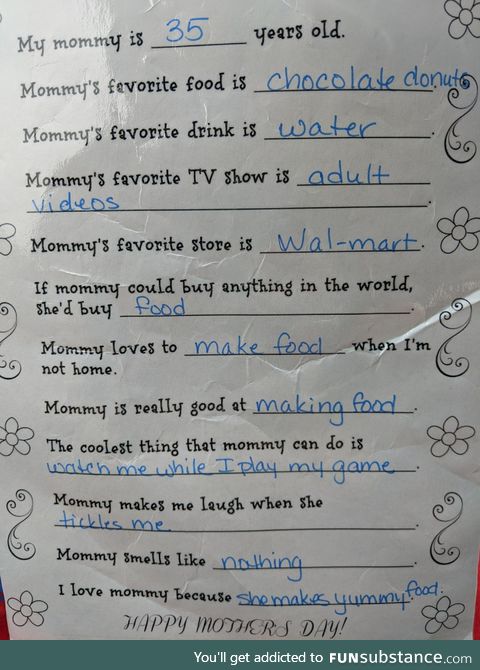 My mommy is 35 years old.
Mommy's favorite food is chocolate donuts.
Mommy's favorite drink is water.
Mommy's favorite TV show is adult
videos.
Mommy's favorite store is Wal-mart.
If mommy could buy anything in the world,
she'd buy food.
Mommy loves to make food when I'm
not home.
Mommy is really good at making food.
The coolest thing that mommy can do is
watch me while I play my game.
Mommy makes me laugh when she
tickles me.
Mommy smells like nothing.
I love mommy because she makes yummy food.
HAPPY MOTHER'S DAY!
You'll get addicted to FUNsubstance.com